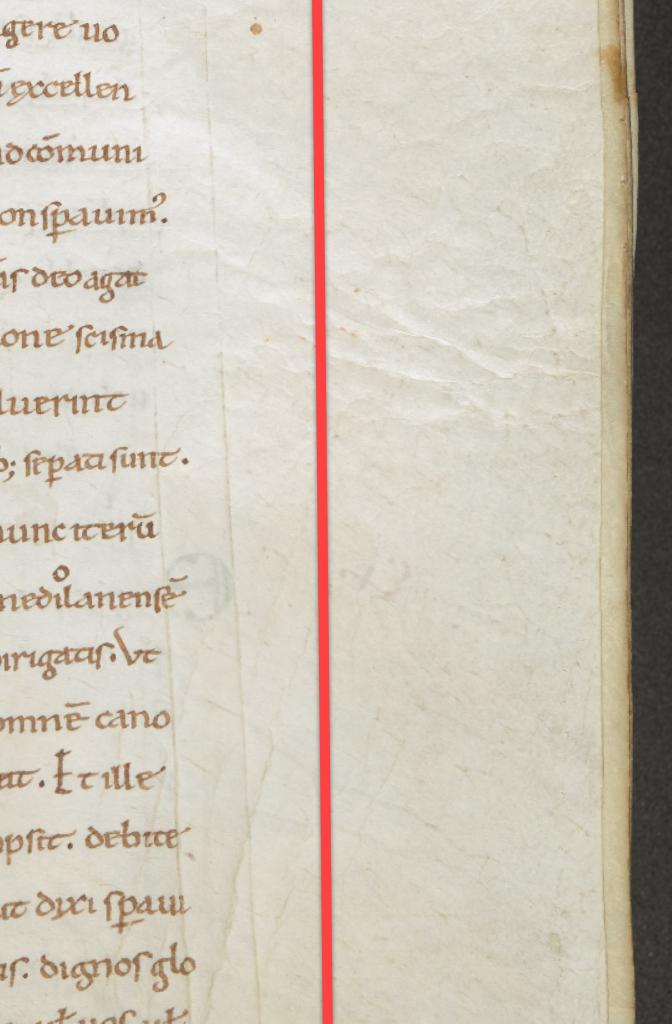 gere uo
excellen
adcōmuni
onsꝑauim᾿.
is deo agat
one scisma
luerint
b; seꝑati sunt.
nunc iterū
mediolanensē
dirigatis. Vt
omnē cano
Et ille
debite
dixi sꝑaui
dignos glo